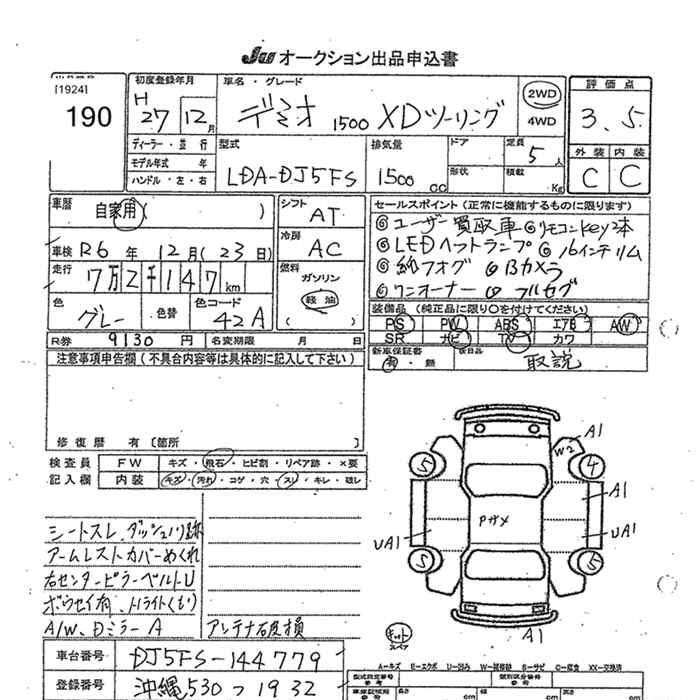 JU オークション出品申込書
[1924]
190
初度登録年月
H 27 12月
車名・グレード
デミオ 1500 XDツーリング
2WD
4WD
評価点
3.5
ディーラー・並行
モデル年式 年
ハンドル・左・右
型式
LDA-DJ5FS
排気量
1500 cc
ドア
形状
定員
5人
積載
Kg
外装 内装
C C
車歴
自家用( )
車検 R6年 12月(23日)
走行
7万2千147km
色
グレー
色替
色コード
42A
シフト
AT
冷房
AC
燃料
ガソリン
軽油
( )
セールスポイント(正常に機能するものに限ります)
◎ユーザー買取車 ◎リモコンkey2本
◎LEDヘットランプ ◎16インチリム
◎純フォグ ◎Bカメラ
◎ワンオーナー ◎フルセグ
装備品(純正品に限り○を付けてください)
PS PW ABS エアB AW
SR ナビ TV カワ
R券 9130円 名変期限 月 日
新車保証書
有・無
後日品
取説
注意事項申告欄(不具合内容等は具体的に記入して下さい)
修復歴 有〔箇所 〕
検査員
記入欄
FW キズ・飛石・ヒビ割・リペア跡・×要
内装 キズ・汚れ・コゲ・穴・スレ・キレ・破レ
シートスレ、ダッシュノリ跡
アームレストカバーめくれ
右センターピラーベルトU
ボウセイ有、Hライトくもり
A/W、Dミラー A
アンテナ破損
A1
W2
5
4
A1
Pサメ
UA1
UA1
5
5
A1
キット
スペア
車台番号 DJ5FS-144779
登録番号 沖縄530つ1932
A-キズ E-エクボ U-凹み W-補修跡 S-サビ C-腐食 XX-交換済
型式指定番号
参考
類別区分番号
参考
車庫証明用
参考
長さ
cm
幅
cm
高さ
cm